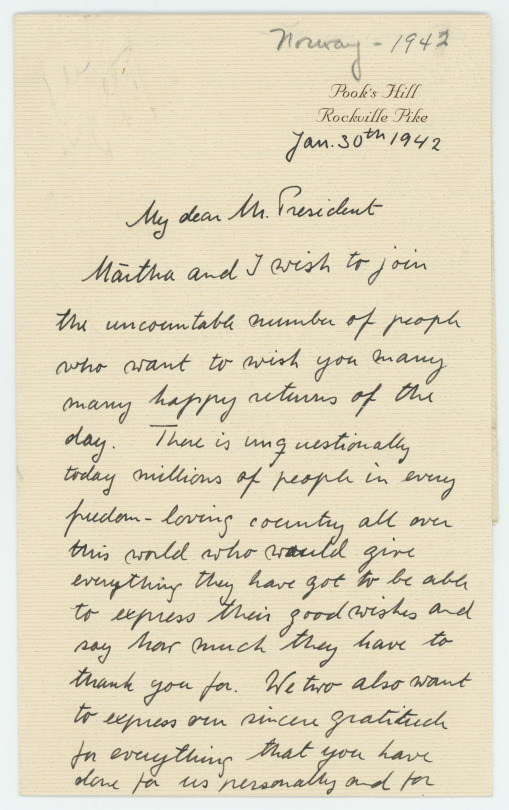 Norway - 1942
Pook's Hill
Rockville Pike
Jan. 30th 1942
My dear Mr. President
Märtha and I wish to join
the uncountable number of people
who want to wish you many
many happy returns of the
day. There is unquestionally
today millions of people in every
freedom-loving country all over
this world who would give
everything they have got to be able
to express their good wishes and
say how much they have to
thank you for. We two also want
to express our sincere gratitude
for everything that you have
done for us personally and for